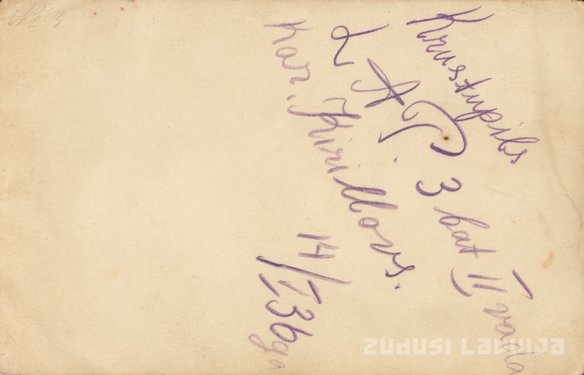 Krustpils
L A P. 3 bat II vada
Kar. Kirillovs.
14/I 36 ga
zudusi Latvija